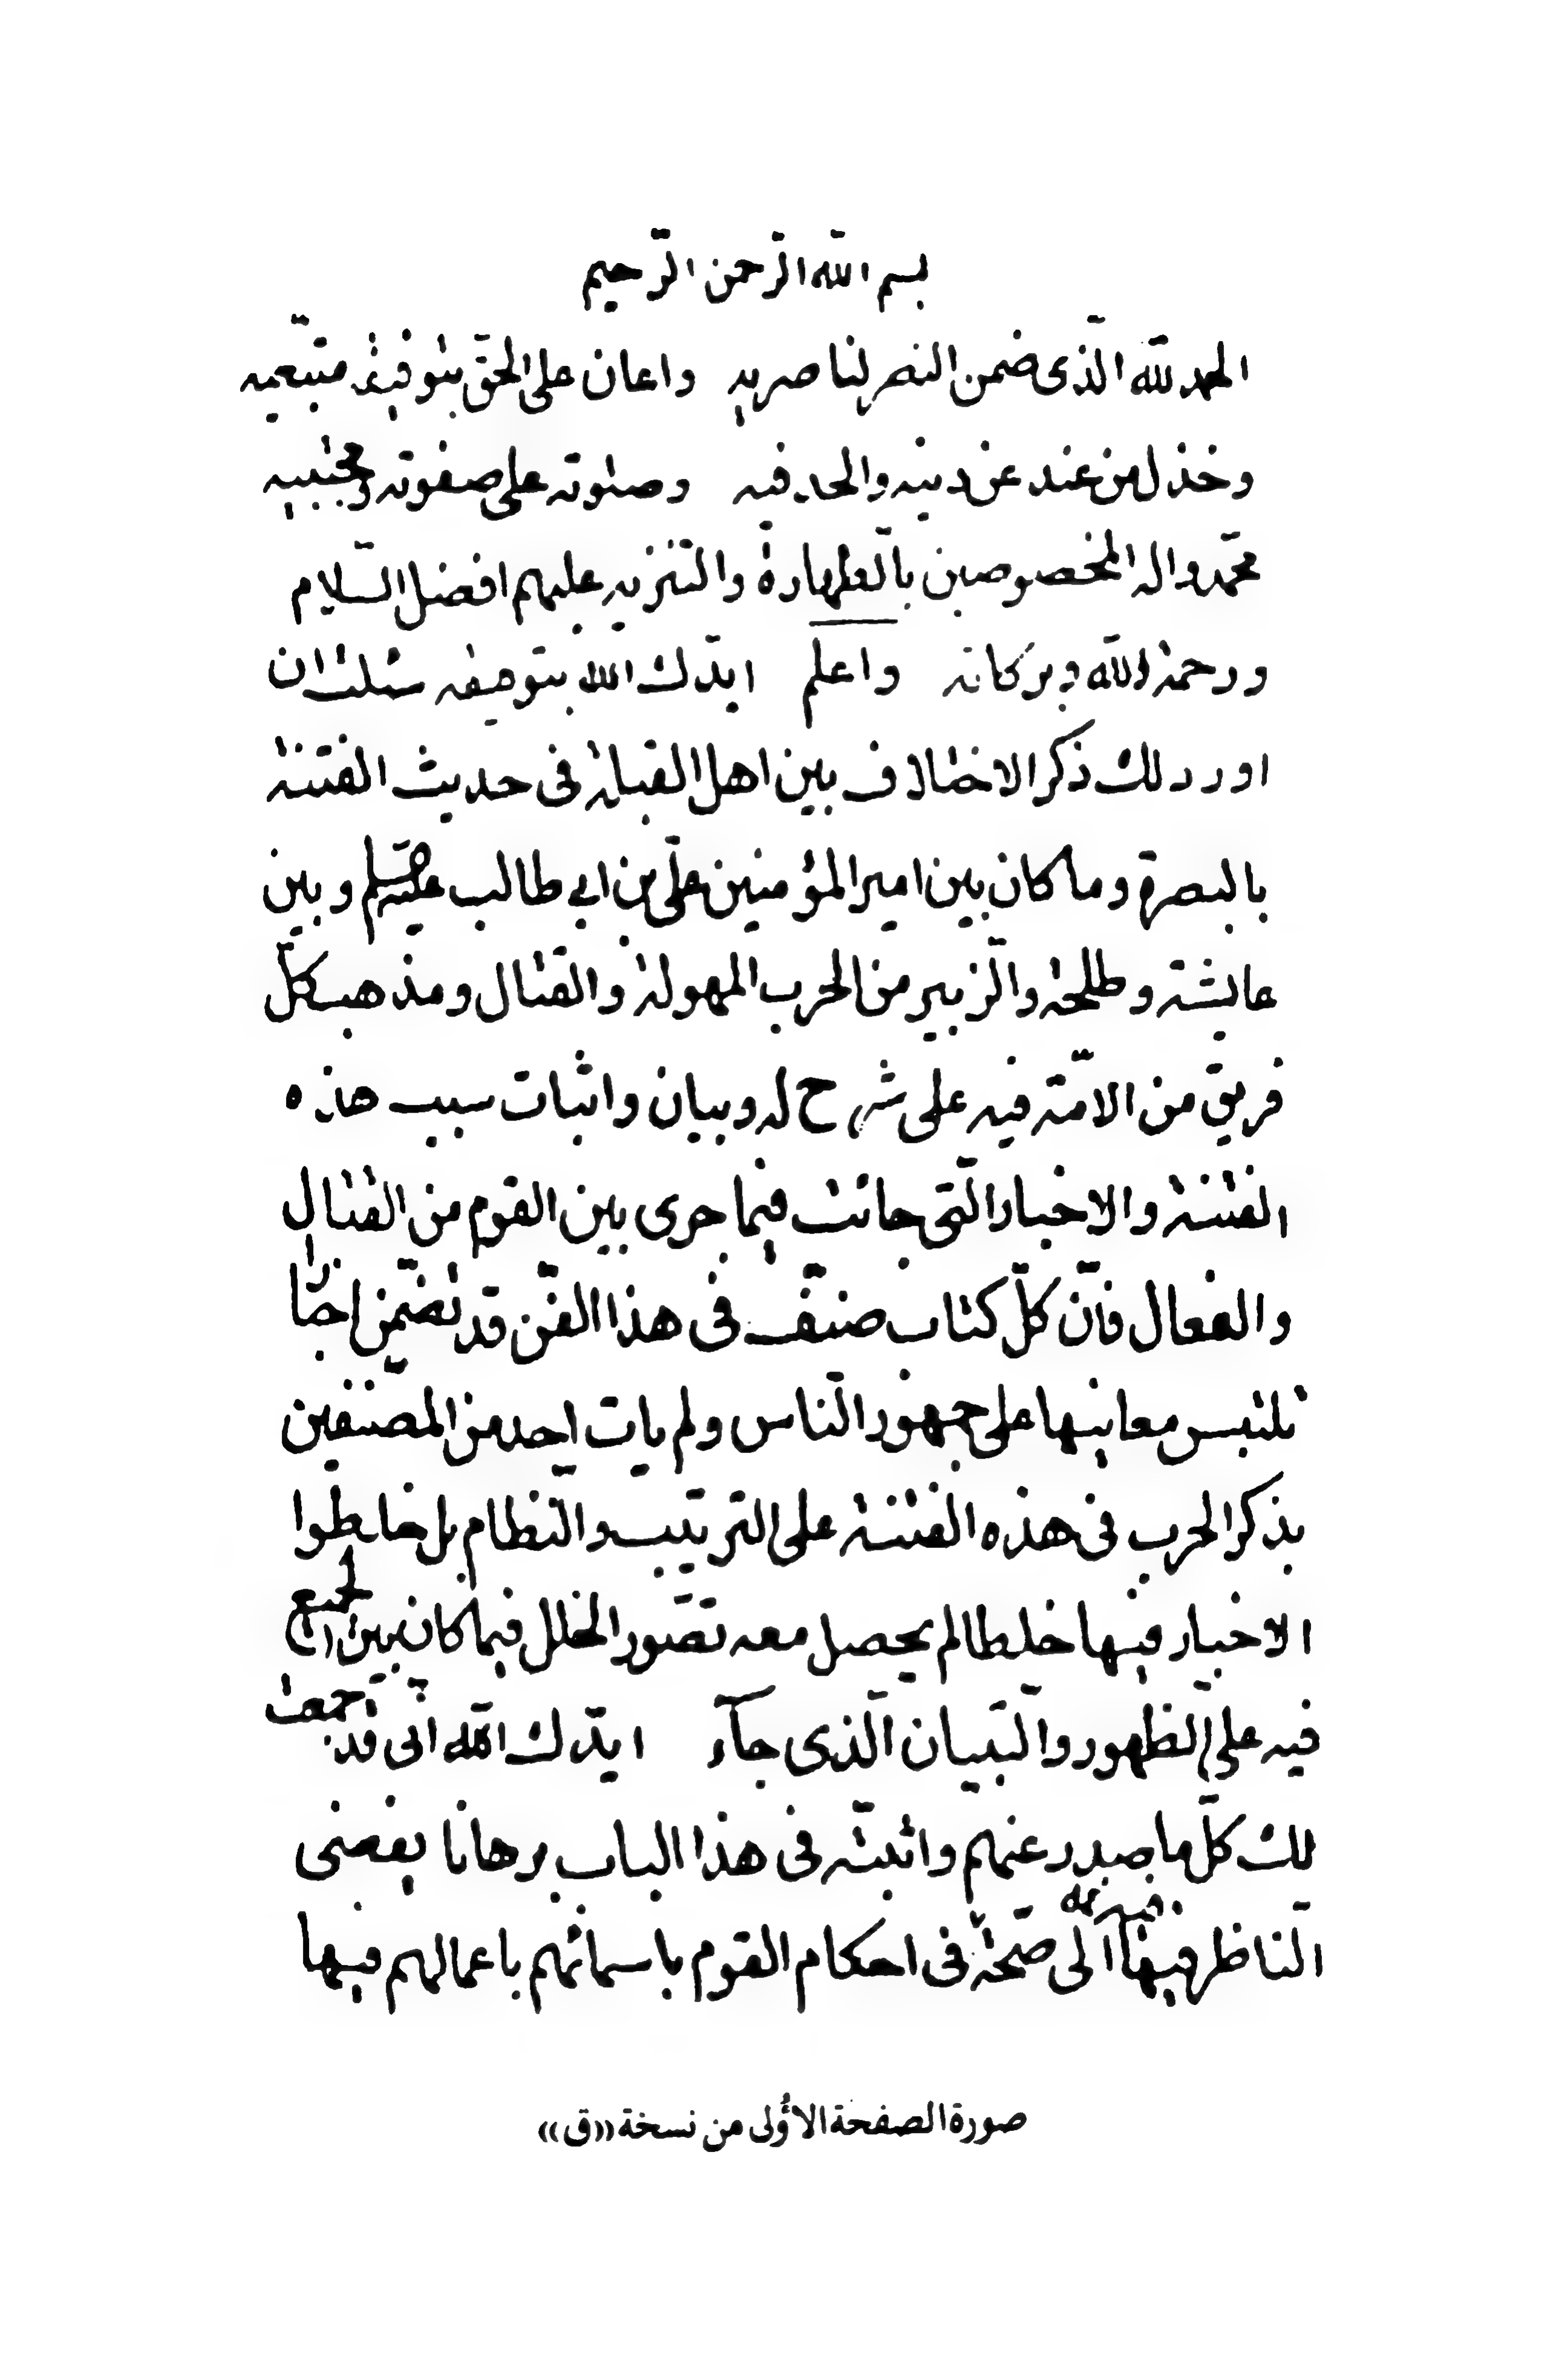 بسم الله الرّحمن الرّحيم
الحمد لله الّذى ضمن النصر لناصريه واعان على الحقّ بتوفيقه متّبعيه
وخذل من عند عن دينه والحد فيه وصلوته على صفوته ومجتبيه
محمّد واله المخصوصين بالطّهارة والتّنزيه عليهم افضل السّلام
ورحمة الله وبركاته واعلم ايّدك الله بتوفيقه سئلت ان
اورد لك ذكر الاختلاف بين اهل القبلة فى حديث الفتنة
بالبصرة وما كان بين امير المؤمنين علىّ بن ابي طالب وبين
عايشة وطلحة والزّبير من الحرب المهولة والقتال ومذهب كلّ
فريق من الامّة فيه على شرح له وبيان واثبات سبب هذه
الفتنة والاخبار الّتى جائت فيما جرى بين القوم من القتال
والفعال فانّ كلّ كتاب صنّف فى هذا الفنّ قد تضمّن اخبارا
تلتبس معانيها على جمهور النّاس ولم يات احد من المصنّفين
بذكر الحرب فى هذه الفتنة على التّرتيب والنّظام بل خلطوا
الاخبار فيها خلطا لم يحصل معه تصّور الخلل فيما كان بين الجميع
فيه على الظّهور والتّبيان الّذى جآء ايّدك الله انّى قد جمعت
لك كلّ ما صدر عنهم واثبتّه فى هذا الباب برهانا يفضى
النّاظر فيها الى صحّة فى احكام القوم باسمائهم باعمالهم فيها
صورة الصفحة الاُولى من نسخة «ق»